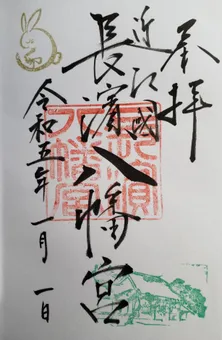 奉拝
近江國
長濱八幡宮
令和五年一月一日
八幡宮